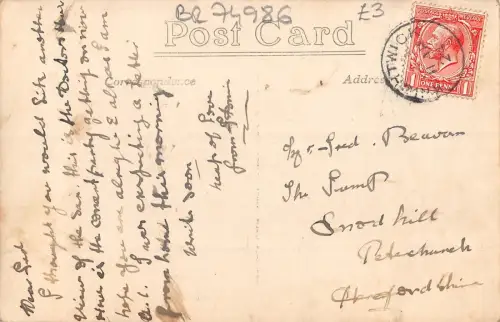 BR 74986
£3
Post Card
Correspondence
Address
ONE PENNY
Dear Fred
I thought you would like another
View of the Sea. this is the Doctors
there is the Concert party getting on now
hope you are alright & also as I am
O.K. I was expecting a letter
from home this morning
Write soon
heap of Love
from
Mr Fred. Beavan
The Pump
Snod hill
Peterchurch
Herefordshire